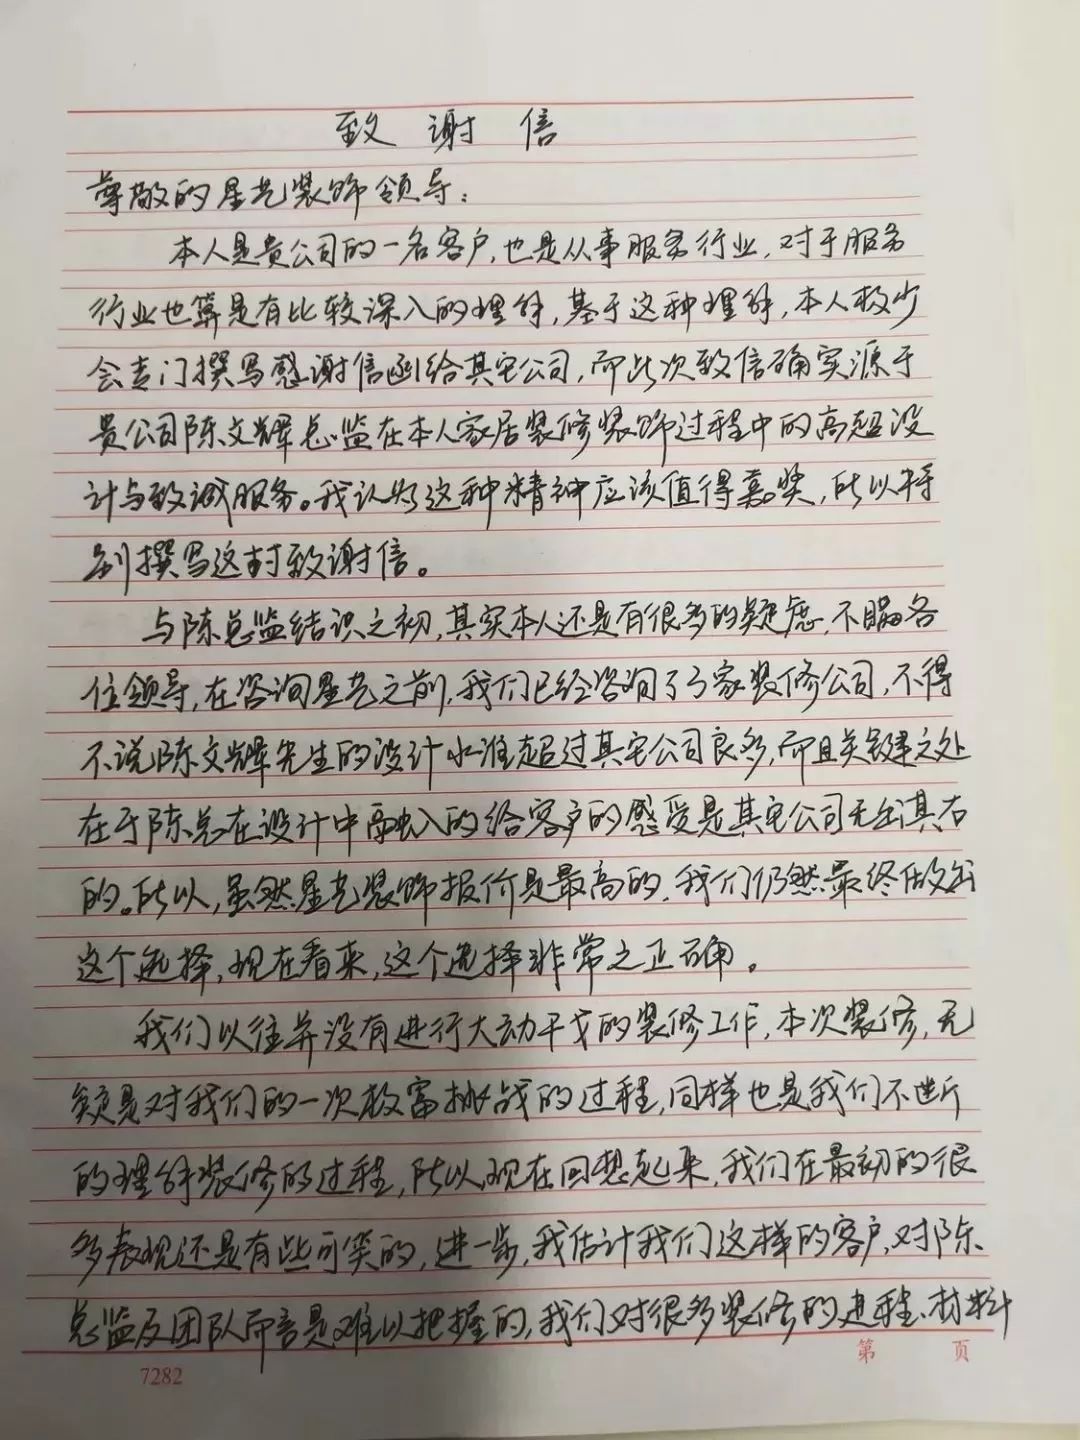 致谢信
尊敬的星艺装饰领导：
本人是贵公司的一名客户，也是从事服务行业，对于服务
行业也算是有比较深入的理解，基于这种理解，本人极少
会专门撰写感谢信函给其它公司，而此次致信确实源于
贵公司陈文辉总监在本人家居装修装饰过程中的高超设
计与致诚服务。我认为这种精神应该值得嘉奖，所以特
别撰写这封致谢信。
与陈总监结识之初，其实本人还是有很多的疑虑，不瞒各
位领导，在咨询星艺之前，我们已经咨询了3家装修公司，不得
不说陈文辉先生的设计水准超过其它公司良多，而且关键之处
在于陈总在设计中融入的给客户的感受是其它公司无出其右
的。所以，虽然星艺装饰报价是最高的，我们仍然最终做出
这个选择，现在看来，这个选择非常之正确。
我们以往并没有进行大动干戈的装修工作，本次装修，无
疑是对我们的一次极富挑战的过程，同样也是我们不断
的理解装修的过程，所以现在回想起来，我们在最初的很
多表现还是有些可笑的，进一步，我估计我们这样的客户，对陈
总监及团队而言是难以把握的，我们对很多装修的进程、材料
第 页
7282